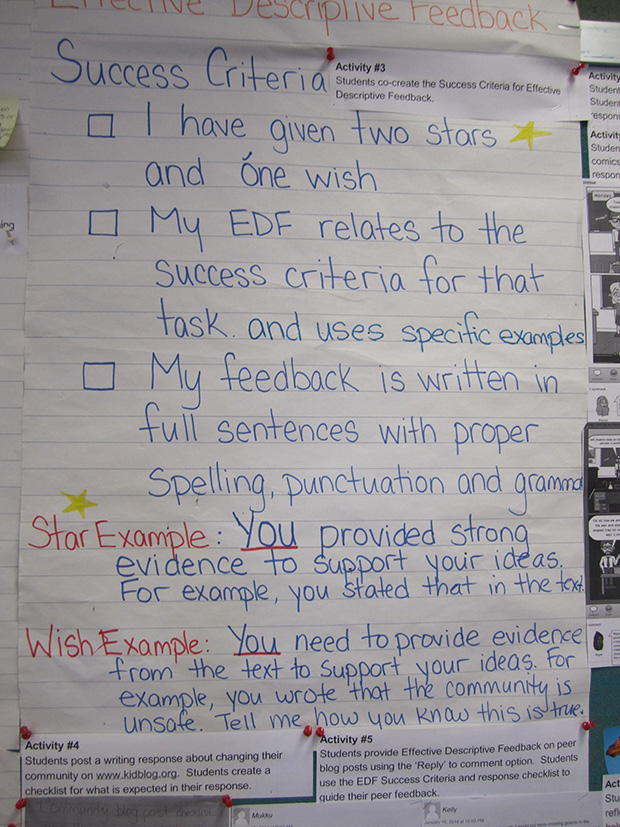 Effective Descriptive Feedback
Success Criteria
Activity #3
Students co-create the Success Criteria for Effective
Descriptive Feedback.
I have given two stars
and one wish
My EDF relates to the
success criteria for that
task. and uses specific examples
My feedback is written in
full sentences with proper
spelling, punctuation and gramma
Star Example: You provided strong
evidence to support your ideas.
For example, you stated that in the text
Wish Example: You need to provide evidence
from the text to support your ideas. For
example, you wrote that the community is
unsafe. Tell me how you know this is true.
Activity #4
Students post a writing response about changing their
community on www.kidblog.org. Students create a
checklist for what is expected in their response.
Activity #5
Students provide Effective Descriptive Feedback on peer
blog posts using the 'Reply' to comment option. Students
use the EDF Success Criteria and response checklist to
guide their peer feedback.
Community blog post
Mukku
Kelly
Activity
Student
Student
respons
Activit
Studen
comics
respon
Act
Stu
refl